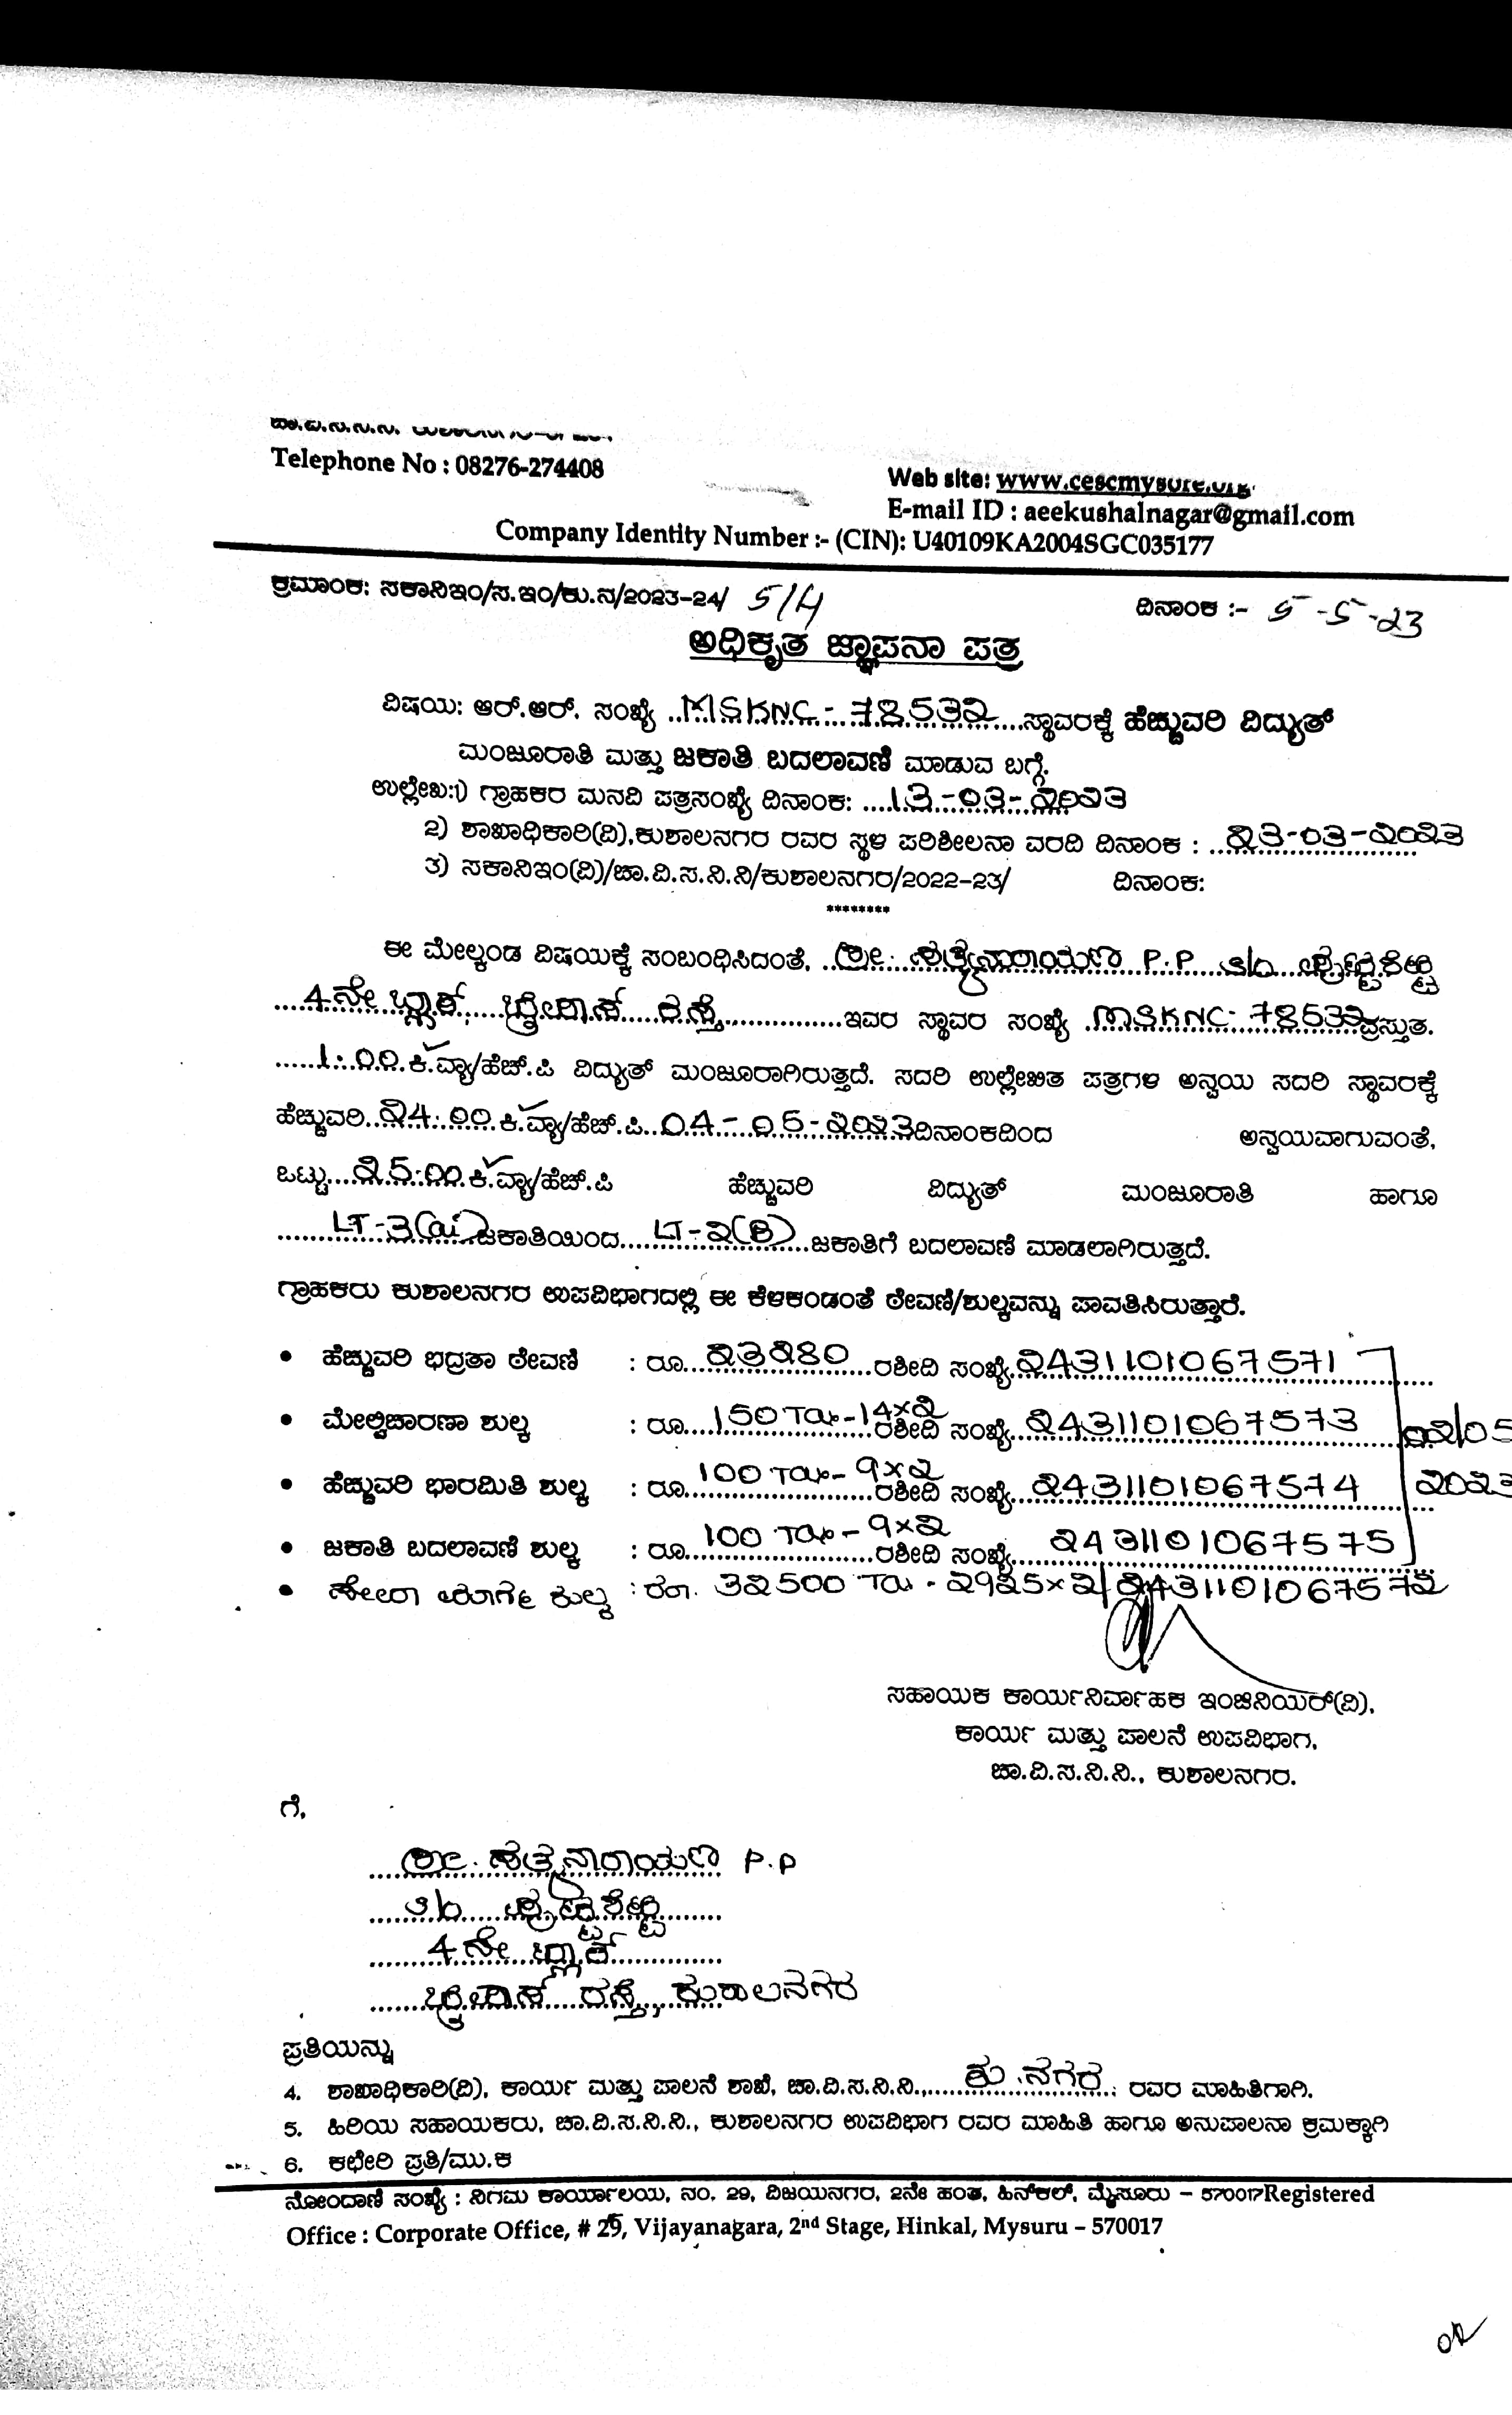 Telephone No : 08276-274408
Web site: www.cescmysore.org
E-mail ID : aeekushalnagar@gmail.com
Company Identity Number :- (CIN): U40109KA2004SGC035177
ಕ್ರಮಾಂಕ: ಸಕಾನಿಇಂ/ಸ.ಇಂ/ಕು.ನ/2023-24/ 514 ದಿನಾಂಕ :- 5-5-23
ಅಧಿಕೃತ ಜ್ಞಾಪನಾ ಪತ್ರ
ವಿಷಯ: ಆರ್.ಆರ್. ಸಂಖ್ಯೆ ..MSKNC-78532....ಸ್ಥಾವರಕ್ಕೆ ಹೆಚ್ಚುವರಿ ವಿದ್ಯುತ್
ಮಂಜೂರಾತಿ ಮತ್ತು ಜಕಾತಿ ಬದಲಾವಣೆ ಮಾಡುವ ಬಗ್ಗೆ.
ಉಲ್ಲೇಖ:1) ಗ್ರಾಹಕರ ಮನವಿ ಪತ್ರಸಂಖ್ಯೆ ದಿನಾಂಕ: ....13-03-2023
2) ಶಾಖಾಧಿಕಾರಿ(ವಿ),ಕುಶಾಲನಗರ ರವರ ಸ್ಥಳ ಪರಿಶೀಲನಾ ವರದಿ ದಿನಾಂಕ : ..23-03-2023
3) ಸಕಾನಿಇಂ(ವಿ)/ಚಾ.ವಿ.ಸ.ನಿ.ನಿ/ಕುಶಾಲನಗರ/2022-23/ ದಿನಾಂಕ:
********
ಈ ಮೇಲ್ಕಂಡ ವಿಷಯಕ್ಕೆ ಸಂಬಂಧಿಸಿದಂತೆ, ..ಶ್ರೀ. ಸತ್ಯನಾರಾಯಣ P.P S/o
....4ನೇ ಬ್ಲಾಕ್, ರಸ್ತೆ..............ಇವರ ಸ್ಥಾವರ ಸಂಖ್ಯೆ .MSKNC-78532ಪ್ರಸ್ತುತ.
......1.00.ಕಿ.ವ್ಯಾ/ಹೆಚ್.ಪಿ ವಿದ್ಯುತ್ ಮಂಜೂರಾಗಿರುತ್ತದೆ. ಸದರಿ ಉಲ್ಲೇಖಿತ ಪತ್ರಗಳ ಅನ್ವಯ ಸದರಿ ಸ್ಥಾವರಕ್ಕೆ
ಹೆಚ್ಚುವರಿ..24.00.ಕಿ.ವ್ಯಾ/ಹೆಚ್.ಪಿ..04-05-2023ದಿನಾಂಕದಿಂದ ಅನ್ವಯವಾಗುವಂತೆ,
ಒಟ್ಟು....25.00.ಕಿ.ವ್ಯಾ/ಹೆಚ್.ಪಿ ಹೆಚ್ಚುವರಿ ವಿದ್ಯುತ್ ಮಂಜೂರಾತಿ ಹಾಗೂ
.......LT-3(ai)ಜಕಾತಿಯಿಂದ....LT-2(B)..ಜಕಾತಿಗೆ ಬದಲಾವಣೆ ಮಾಡಲಾಗಿರುತ್ತದೆ.
ಗ್ರಾಹಕರು ಕುಶಾಲನಗರ ಉಪವಿಭಾಗದಲ್ಲಿ ಈ ಕೆಳಕಂಡಂತೆ ಠೇವಣಿ/ಶುಲ್ಕವನ್ನು ಪಾವತಿಸಿರುತ್ತಾರೆ.
• ಹೆಚ್ಚುವರಿ ಭದ್ರತಾ ಠೇವಣಿ : ರೂ...23280...ರಶೀದಿ ಸಂಖ್ಯೆ.2431101067571
• ಮೇಲ್ವಿಚಾರಣಾ ಶುಲ್ಕ : ರೂ...150 Tax-14×2 ರಶೀದಿ ಸಂಖ್ಯೆ..2431101067573 02/05
• ಹೆಚ್ಚುವರಿ ಭಾರಮಿತಿ ಶುಲ್ಕ : ರೂ.100 Tax-9×2 ರಶೀದಿ ಸಂಖ್ಯೆ...2431101067574 2023
• ಜಕಾತಿ ಬದಲಾವಣೆ ಶುಲ್ಕ : ರೂ..100 Tax-9×2 ರಶೀದಿ ಸಂಖ್ಯೆ....2431101067575
• ಸೇವಾ ಶುಲ್ಕ : ರೂ. 32500 Tax-2925×2/2431101067572
ಸಹಾಯಕ ಕಾರ್ಯನಿರ್ವಾಹಕ ಇಂಜಿನಿಯರ್(ವಿ),
ಕಾರ್ಯ ಮತ್ತು ಪಾಲನೆ ಉಪವಿಭಾಗ,
ಚಾ.ವಿ.ಸ.ನಿ.ನಿ., ಕುಶಾಲನಗರ.
ಗೆ,
ಶ್ರೀ. ಸತ್ಯನಾರಾಯಣ P.P
S/o
4ನೇ ಬ್ಲಾಕ್
ರಸ್ತೆ, ಕುಶಾಲನಗರ
ಪ್ರತಿಯನ್ನು
4. ಶಾಖಾಧಿಕಾರಿ(ವಿ), ಕಾರ್ಯ ಮತ್ತು ಪಾಲನೆ ಶಾಖೆ, ಚಾ.ವಿ.ಸ.ನಿ.ನಿ.,....ಕು.ನಗರ.. ರವರ ಮಾಹಿತಿಗಾಗಿ.
5. ಹಿರಿಯ ಸಹಾಯಕರು, ಚಾ.ವಿ.ಸ.ನಿ.ನಿ., ಕುಶಾಲನಗರ ಉಪವಿಭಾಗ ರವರ ಮಾಹಿತಿ ಹಾಗೂ ಅನುಪಾಲನಾ ಕ್ರಮಕ್ಕಾಗಿ
6. ಕಛೇರಿ ಪ್ರತಿ/ಮು.ಕ
ನೋಂದಾಣಿ ಸಂಖ್ಯೆ : ನಿಗಮ ಕಾರ್ಯಾಲಯ, ನಂ. 29, ವಿಜಯನಗರ, 2ನೇ ಹಂತ, ಹಿನ್‌ಕಲ್, ಮೈಸೂರು – 570017Registered
Office : Corporate Office, # 29, Vijayanagara, 2nd Stage, Hinkal, Mysuru – 570017